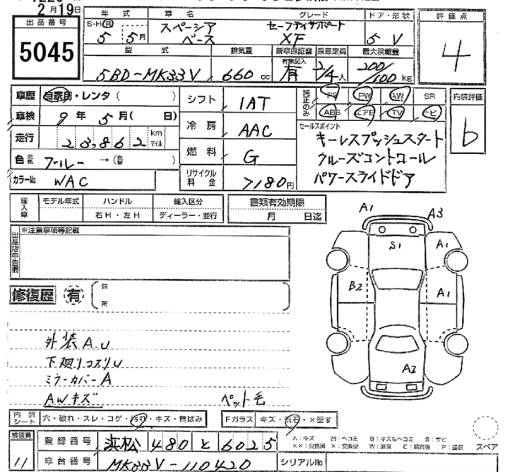 2月19日
出品番号 年式 車名 グレード ドア・形状 評価点
5045
S・H・R 5年 5月 スペーシア ベース セーフティサポート XF 5 V
4
型式 排気量 新車保証書 乗車定員 最大積載量
5BD-MK33V 660cc 有 2/4人 200/100kg
車歴 自家用・レンタ( )
シフト 1AT
PS PW AW SR
内装評価
b
車検 9年 5月(日)
冷房 AAC
ABS エアB TV ナビ
走行 23,862 km マイル
セールスポイント
キーレスプッシュスタート
クルーズコントロール
パワースライドドア
色 ブルー→( )
燃料 G
カラーNo. WAC
リサイクル料金 7180円
輸入車 モデル年式 ハンドル 輸入区分 書類有効期限
右H・左H ディーラー・並行 月 日迄
※注意事項等記載
A1 A3
S1
B2 A1 A1
A2
修復歴 有
外装A.U
下廻りコスリU
ミラーカバーA
AWキズ
ペット毛
内張シート 穴・破れ・スレ・コゲ・汚れ・キズ・雨ばみ Fガラス キズ・
登録番号 浜松 480 と 6025
11
車台番号 MK33V-110420 シリアルNo.
スペア